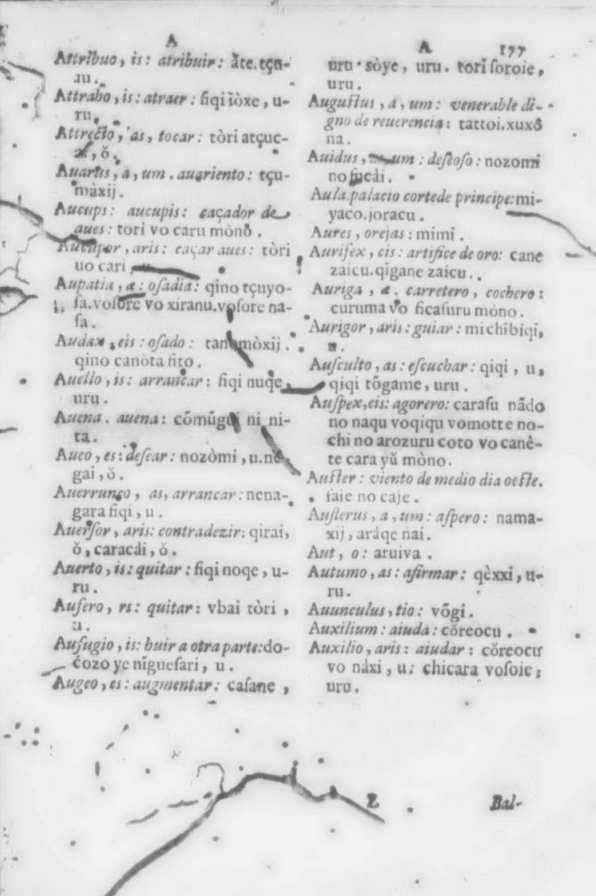 A
Attribuo, is: atribuir: ãte. tçu-
ru.
Attrabo, is: atraer: fiqi iòxe, u-
ru.
Attrecto, as, tocar: tòri atçuc-
ai, ŏ.
Auarus, a, um. auariento: tçu-
màxij.
Aucups: aucupis: caçador de
aues: tori vo caru mònŏ.
Aucupor, aris: caçar aues: tòri
uo cari
Aupatia, æ: osadia: qino tçuyo-
sa. vosore vo xiranu. vosore na-
sa.
Audax, eis: osado: tan mòxij.
qino canòta fito.
Auello, is: arrancar: fiqi nuqe,
uru.
Auena. auena: cõmŭgui ni ni-
ta.
Aueo, es: desear: nozòmi, u. ne-
gai, ŏ.
Auerrunco, as, arrancar: nena-
gara fiqi, u.
Auersor, aris: contradezir: qirai,
ŏ, caracài, ŏ.
Auerto, is: quitar: fiqi noqe, u-
ru.
Aufero, rs: quitar: vbai tòri,
u.
Aufugio, is: huir a otra parte: do-
cozo ye nĩguesari, u.
Augeo, es: augmentar: casane,
A 177
uru. sòye, uru. tori soroie,
uru.
Augustus, a, um: venerable di-
gno de reuerencia: tattoi. xuxŏ
na.
Auidus, um: deseoso: nozomi
no fucài.
Aula. palacio corte de principe: mi-
yaco. joracu.
Aures, orejas: mimi.
Aurifex, cis: artifice de oro: cane
zaicu. qĩgane zaicu.
Auriga, æ. carretero, cochero:
curuma vo ficasuru mòno.
Aurigor, aris: guiar: michibiqi,
u.
Ausculto, as: escuchar: qiqi, u,
qiqi tõgame, uru.
Auspex, eis: agorero: carasu nãdo
no naqu voqiqu vomotte no-
chi no arozuru coto vo canê-
te cara yŭ mòno.
Auster: viento de medio dia oeste.
faie no caje.
Austerus, a, um: aspero: nama-
xij, aràqe nai.
Aut, o: aruiva.
Autumo, as: afirmar: qèxxi, u-
ru.
Auunculus, tio: võgi.
Auxilium: aiuda: cŏreocu.
Auxilio, aris: aiudar: cŏreocu
vo nàxi, u: chicara vosoie;
uru.
Z Bal-